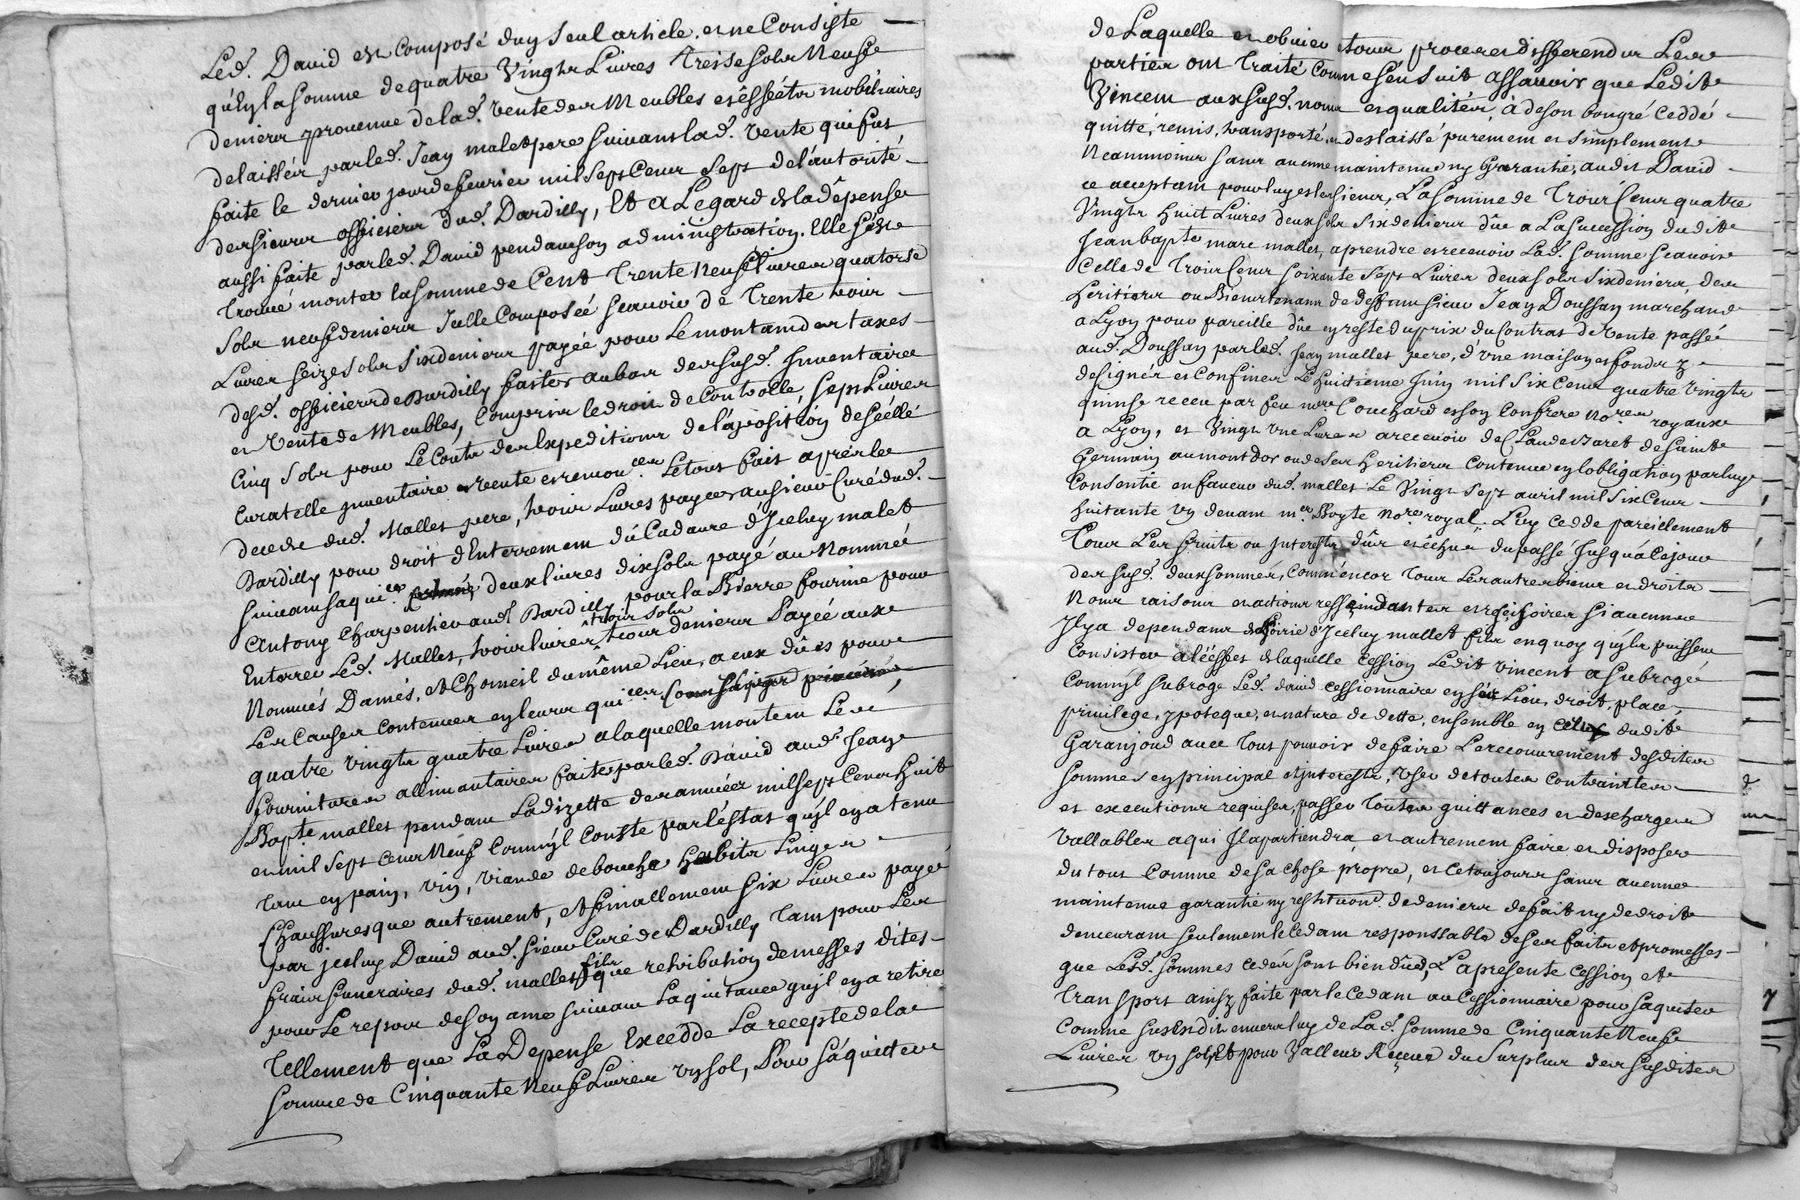 Led. David est composé d'uy seul article, et ne Consiste
qu'Ey la somme de quatre Vingts Livres Treise sols Neufe
deniers prouenue de la d. vente des Meubles et éfféts mobiliaires
delaissés par led. Jeay malet pere suiuant la d. Vente qui fut
faite le dernier jour de feurier mil Sept Cens Sept de l'autorité
des sieurs officiers dud. Dardilly, Et a L'egard de la dépense
aussi faite par led. David pendant soy administration. Elle s'est
trouué monter la somme de Cent Trente Neuf liures quatorse
sols neuf deniers Icelle Composéé scauoir de Trente trois
Liures seize sols six deniers payéé pour Le montant des taxes
desd. officiers de Dardilly faites au bas des susd. Jnuentaire
et vente de Meubles, Compris le droit de Controlle, Sept Liures
Cinq sols pour Le Coute des Expeditions de l'aposition de sééllé
Curatelle jnuentaire vente et remon.ces Le tout fait aprés le
decedz dud. Mallet pere, trois Liures payees au sieur Curé dud.
Dardilly pour droit d'Enterrement du Cadaure d'Jceluy malet
suiuant sa qui.ce deux liures dix sols payé au Nommé
Antony Charpentier aud. Dardilly pour la Bierre fournie pour
Enterrer Led. Mallet, trois liures trois sols trois deniers Payéé aux
Nommés Damés, et Chomeil du même Lieu, a eux dûës pour
Les Causes contenues ey leurs qui.ces
quatre vingts quatre Liures a laquelle montent Les
fournitures alimantaires faites par led. David aud. Jeay
Bap.te mallet pendant La dizette des années mil sept Cens huit
et mil sept Cens Neuf Comm'jl Conste par l'éstat qu'jl ey a tenu
tant ey pain, viy, viande de bouche habits Linges
Chaussures que autrement, et finallement six Liures payé
par jceluy David aud. sieur Curé de Dardilly tant pour Les
frais funeraires dud. mallet fils que retribution de messes dites
pour Le repos de soy ame suiuant la quittance qu'jl ey a retiré
Tellement que La Depense Excedde La recepte de la
somme de Cinquante Neuf Liures vy sol, Pour s'aquitter
de Laquelle et obuier a tous proces et differends Les
parties ont Traité comme s'en suit assauoir que Ledit
Vincent aux susd. noms et qualités, a de son bongré Ceddé
quitté, remis, transporté, et deslaissé purement et simplement
Neanmoins sans aucune maintenue ny Garantie, audit David
ce acceptant pour luy et les siens, La somme de Trois Cens quatre
Vingts huit Liures deux sols six deniers dûe a La succession dudit
Jean bapte marc mallet, a prendre et receuoir Lad. somme scauoir
Celle de Trois Cens soixante sept Liures deux sols six deniers, des
heritiers ou Bientenans de deffunt sieur Jeay Doussay marchand
a Lyon pour pareille dûe ey reste du prix du Contrat de Vente passé
aud. Doussay par led. Jeay mallet pere, d'vne maison et fonds y
designés et Confinés Le huitieme Juiy mil six Cens quatre vingts
quinse receu par feu m.re Couchard et soy Confrere no.res royaux
a Lyon, et Vingt vne Liures a receuoir de Claude Jaret de saint
Germain au mont dor ou de ses heritiers Contenue ey l'obligation par luy
Consentie en faueur dud. mallet Le Vingt Sept auril mil six Cens
huitante vy deuant m.re Boyte no.re royal. Luy cedde pareillement
Tous Les fruits ou jnterests dûs et échus du passé Jusqu'a Ce jour
des susd. deux sommes, Comm'encor tous Les autres biens et droits
Noms raisons et actions rescindantes et rescisoires si aucunes
Jl y a dependans de l'hoirie d'Jceluy mallet fils en quoy qu'jls puissent
Consister a l'éffet de laquelle cession Ledit vincent a subrogé
Comm'jl subroge Led. david cessionnaire ey ses Lieu, droit, place,
priuilege, ypoteque, et nature de dette, ensemble ey Celux dudit
Garanjoud auec Tous pouuoirs de faire Le recouurement desdites
sommes ey principal et jnterests, vser de toutes contraintes
et executions requises, passer Toutes quittances et descharges
Vallables a qui Jl apartiendra, et autrement faire et disposer
du tout Comme de sa chose propre, et Ce toujours sans aucune
maintenue garantie ny restitution de deniers de fait ny de droit
demeurant seulement le Cedant responssable de ses faits et promesses
que Lesd. sommes cedés sont bien dûes, La presente Cession et
Transport ainsy faite par le Cedant au Cessionnaire pour s'aquiter
Comme susEsdit enuers luy de La d. somme de Cinquante Neufe
Liures vy sol, Et pour Valleur Receue du Surplus des susdites